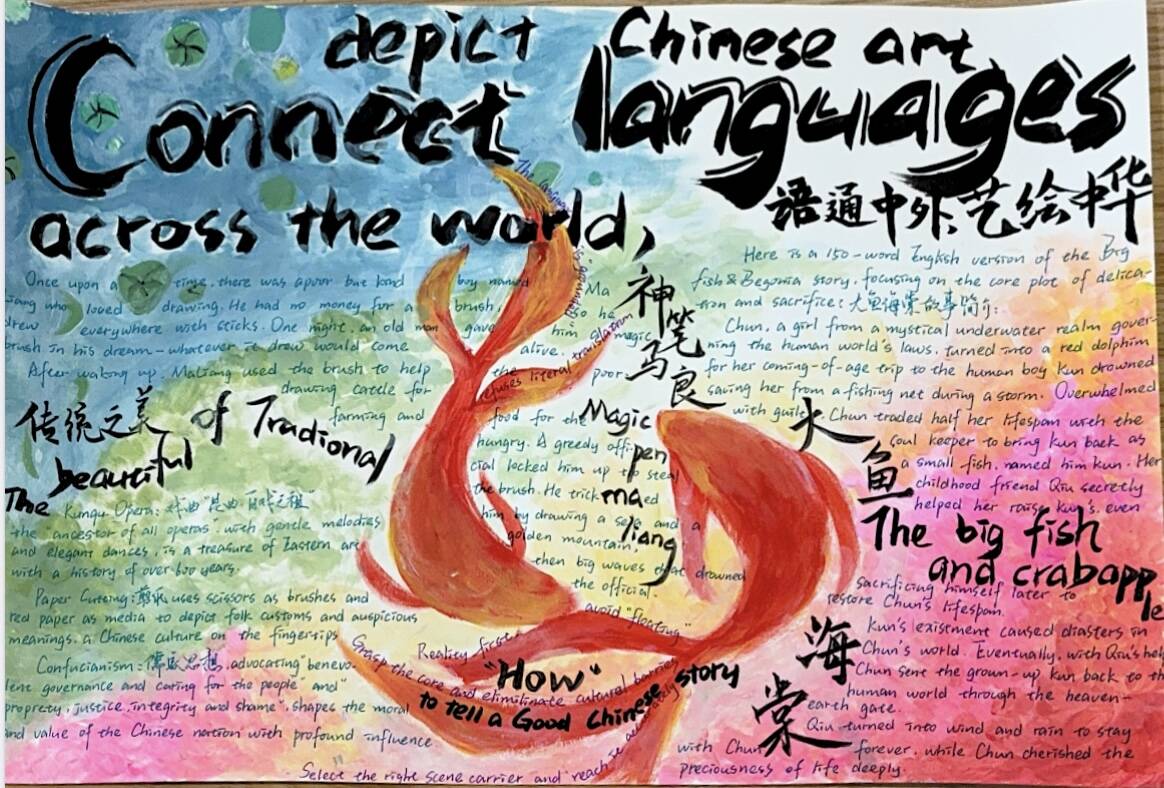 depict Chinese art,
Connect languages
across the world,
语通中外 艺绘中华
Once upon a time, there was a poor but kind boy named Ma
iang who loved drawing. He had no money for a brush, so he
drew everywhere with sticks. One night, an old man gave him magic
brush in his dream—whatever it drew would come alive.
After waking up, MaLiang used the brush to help the poor-
drawing cattle for
farming and
food for the
hungry. A greedy offi-
cial locked him up to steal
the brush. He tricked
him by drawing a sea and a
golden mountain,
then big waves that drowned
the official.
神笔马良
Magic
pen
ma
liang
传统之美 of Tradional
beautiful
The
Kunqu Opera: 戏曲"昆曲 百戏之祖"
"the ancestor of all operas" with gentle melodies
and elegant dances, is a treasure of Eastern art
with a history of over 600 years.
Paper Cuteing: 剪纸 uses scissors as brushes and
red paper as media to depict folk customs and auspicious
meanings, a Chinese culture on the fingertips
Confucianism: 儒家思想, advocating "benevo-
lent governance and caring for the people and"
proprety, justice, integrity and shame", shapes the moral
and value of the Chinese nation with profound influence
Here is a 150-word English version of the Big
fish & Begonia story, focusing on the core plot of delica-
tion and sacrifice: 大鱼海棠故事简介:
Chun, a girl from a mystical underwater realm gover-
ning the human world's laws, turned into a red dolphin
for her coming-of-age trip to the human boy Kun drowned
saving her from a fishing net during a storm. Overwhelmed
with guilt, Chun traded half her lifespan with the
soul keeper to bring kun back as
a small fish, named him kun. Her
childhood friend Qiu secretly
helped her raise Kun's, even
大鱼
The big fish
and crabapple
sacrificing himself later to
restore Chun's lifespan.
Kun's existment caused diasters in
Chun's world. Eventually, with Qiu's help
Chun sent the grown-up kun back to th
human world through the heaven-
earth gate.
Qiu turned into wind and rain to stay
with Chun forever, while Chun cherished the
preciousness of life deeply.
海棠
refuses literal translation
avoid "floating"
Reality first
Grasp the core and elimiinate cultural barrier
"How"
to tell a Good Chinese story
Select the right scene carrier and reach